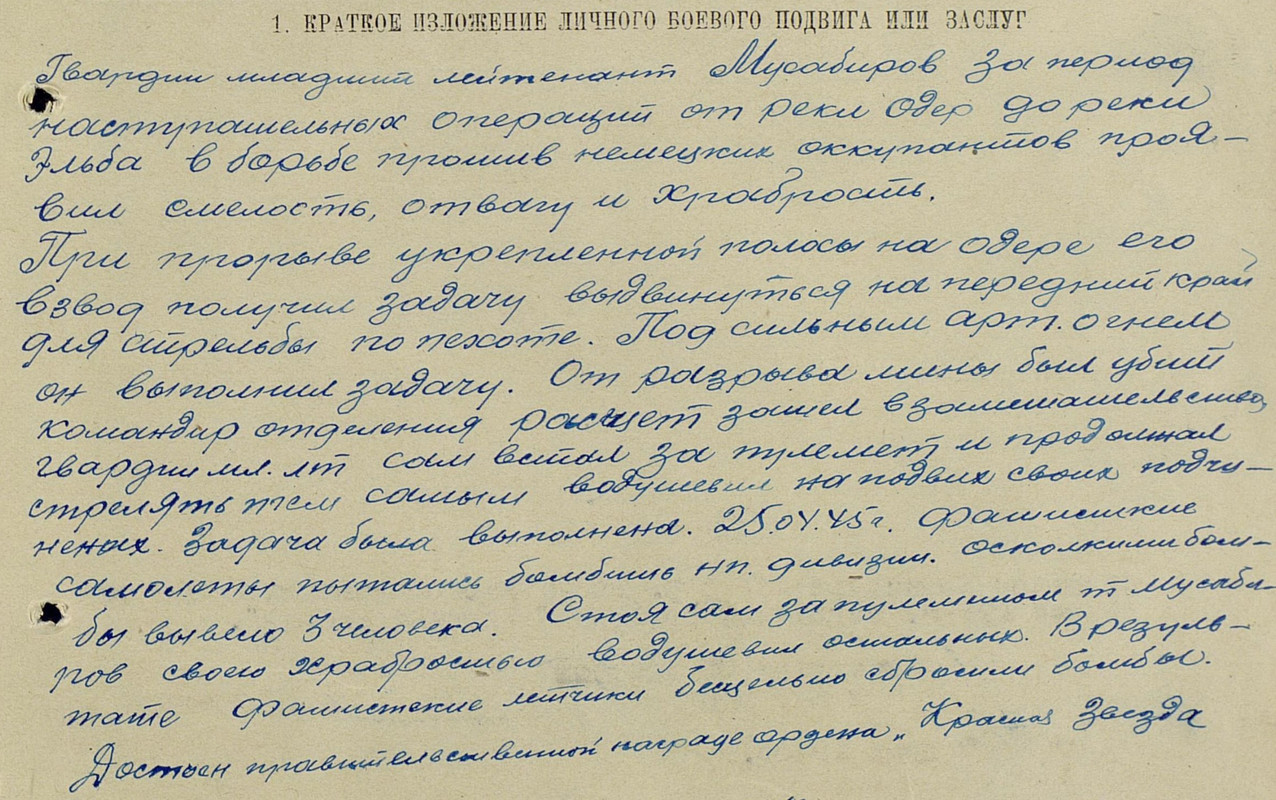 1. КРАТКОЕ ИЗЛОЖЕНИЕ ЛИЧНОГО БОЕВОГО ПОДВИГА ИЛИ ЗАСЛУГ
Гвардии младший лейтенант Мусабиров за период
наступательных операций от реки Одер до реки
Эльба в борьбе против немецких оккупантов проя-
вил смелость, отвагу и храбрость.
При прорыве укрепленной полосы на Одере его
взвод получил задачу выдвинуться на передний край
для стрельбы по пехоте. Под сильным арт. огнем
он выполнил задачу. От разрыва мины был убит
командир отделения расчет зашел в замешательство,
гвардии мл. лт сам встал за пулемет и продолжал
стрелять тем самым водушевил на подвиг своих подчи-
неных. Задача была выполнена. 25.04.45г. Фашисткие
самолеты пытались бомбить нп. дивизии. осколкими бом-
бы вывело 3 человека. Стоя сам за пулеметом т Мусаби-
ров своею храбростью водушевил остальных. В резуль-
тате фашистские летчики бесцельно сбросили бомбы.
Достоен правительственной награде ордена „Красная Звезда